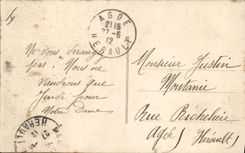 AGDE
21 15
27-5
12
HERAULT
Ne vous dérangez
pas. Nous ne
viendrons que
jeudi pour
Notre Dame
Monsieur Justin
Rue Richelieu
Agde Hérault
HERAULT